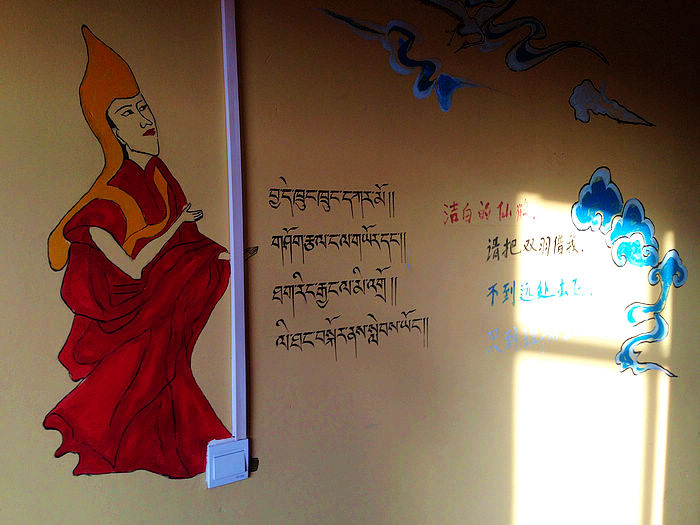 བྱ་དེ་ཁྲུང་ཁྲུང་དཀར་མོ།།
གཤོག་རྩལ་ང་ལ་གཡོར་དང་།།
ཐག་རིང་རྒྱང་ལ་མི་འགྲོ།།
ལི་ཐང་བསྐོར་ནས་སླེབས་ཡོང་།།
洁白的仙鹤,
请把双羽借我.
不到远处去飞,
只到